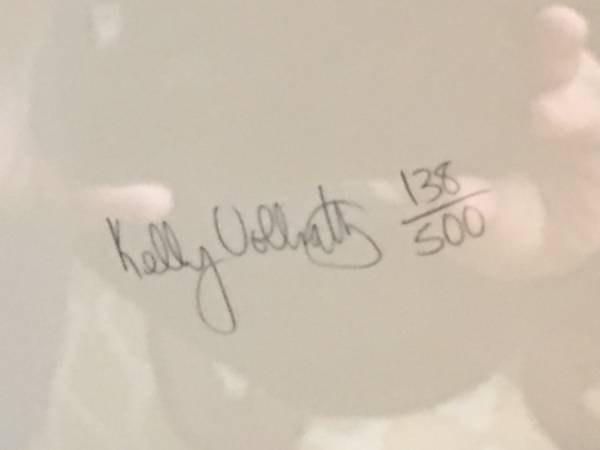 Kelly Vollrath 138/500